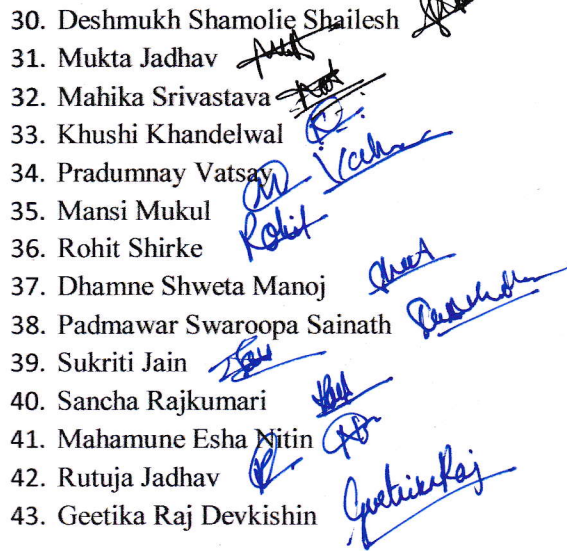 30. Deshmukh Shamolie Shailesh
31. Mukta Jadhav
32. Mahika Srivastava
33. Khushi Khandelwal
34. Pradumnay Vatsay
35. Mansi Mukul
36. Rohit Shirke Rohit
37. Dhamne Shweta Manoj
38. Padmawar Swaroopa Sainath
39. Sukriti Jain
40. Sancha Rajkumari
41. Mahamune Esha Nitin
42. Rutuja Jadhav
43. Geetika Raj Devkishin GeetikaRaj